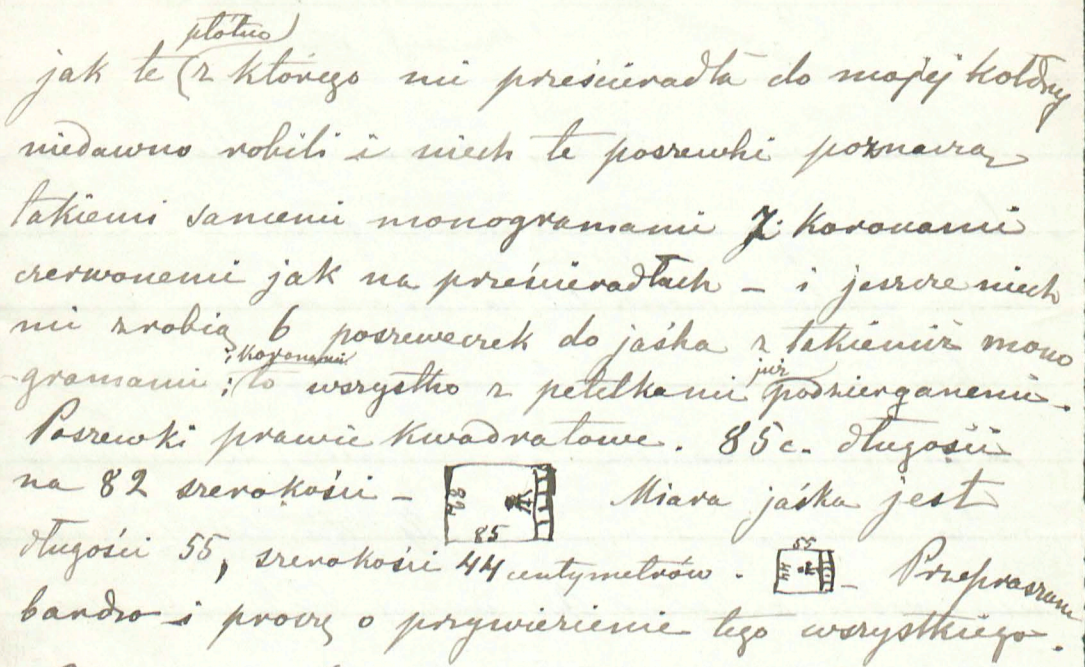 płótno)
jak te (z ktorego mi prześcieradła do mojej kołdry
niedawno robili i niech te poszewki poznaczą
takiemi samemi monogramami z koronami
czerwonemi jak na prześcieradłach – i jeszcze niech
mi zrobią 6 poszeweczek do jaśka z takiemiż mono
i koronami
gramami i to wszystko z petelkami już podzierganemi.
Poszewki prawie kwadratowe. 85 c. długości
na 82 szerokości – 82 85 Miara jaśka jest
długości 55, szerokości 44 centymetrów. 55 44 – Przepraszam
bardzo i proszę o przywiezienie tego wszystkiego.